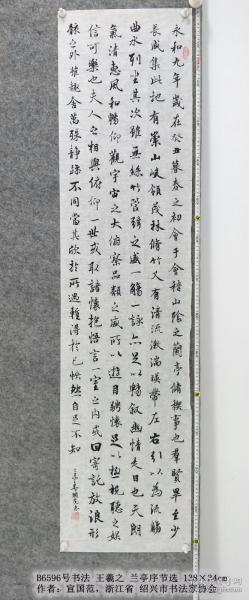 永和九年歲在癸丑暮春之初會于會稽山陰之蘭亭脩禊事也群賢畢至少
長咸集此地有崇山峻領茂林脩竹又有清流激湍暎帶左右引以為流觴
曲水列坐其次雖無絲竹管弦之盛一觴一詠亦足以暢叙幽情是日也天朗
氣清惠風和暢仰觀宇宙之大俯察品類之盛所以遊目騁懷足以極視聽之娛
信可樂也夫人之相與俯仰一世或取諸懷抱悟言一室之內或因寄所託放浪形
骸之外雖趣舍萬殊靜躁不同當其欣於所遇暫得於己怏然自足不知
B6596号书法 王羲之 兰亭序节选 138×34cm
作者：宣国范，浙江省 绍兴市书法家协会